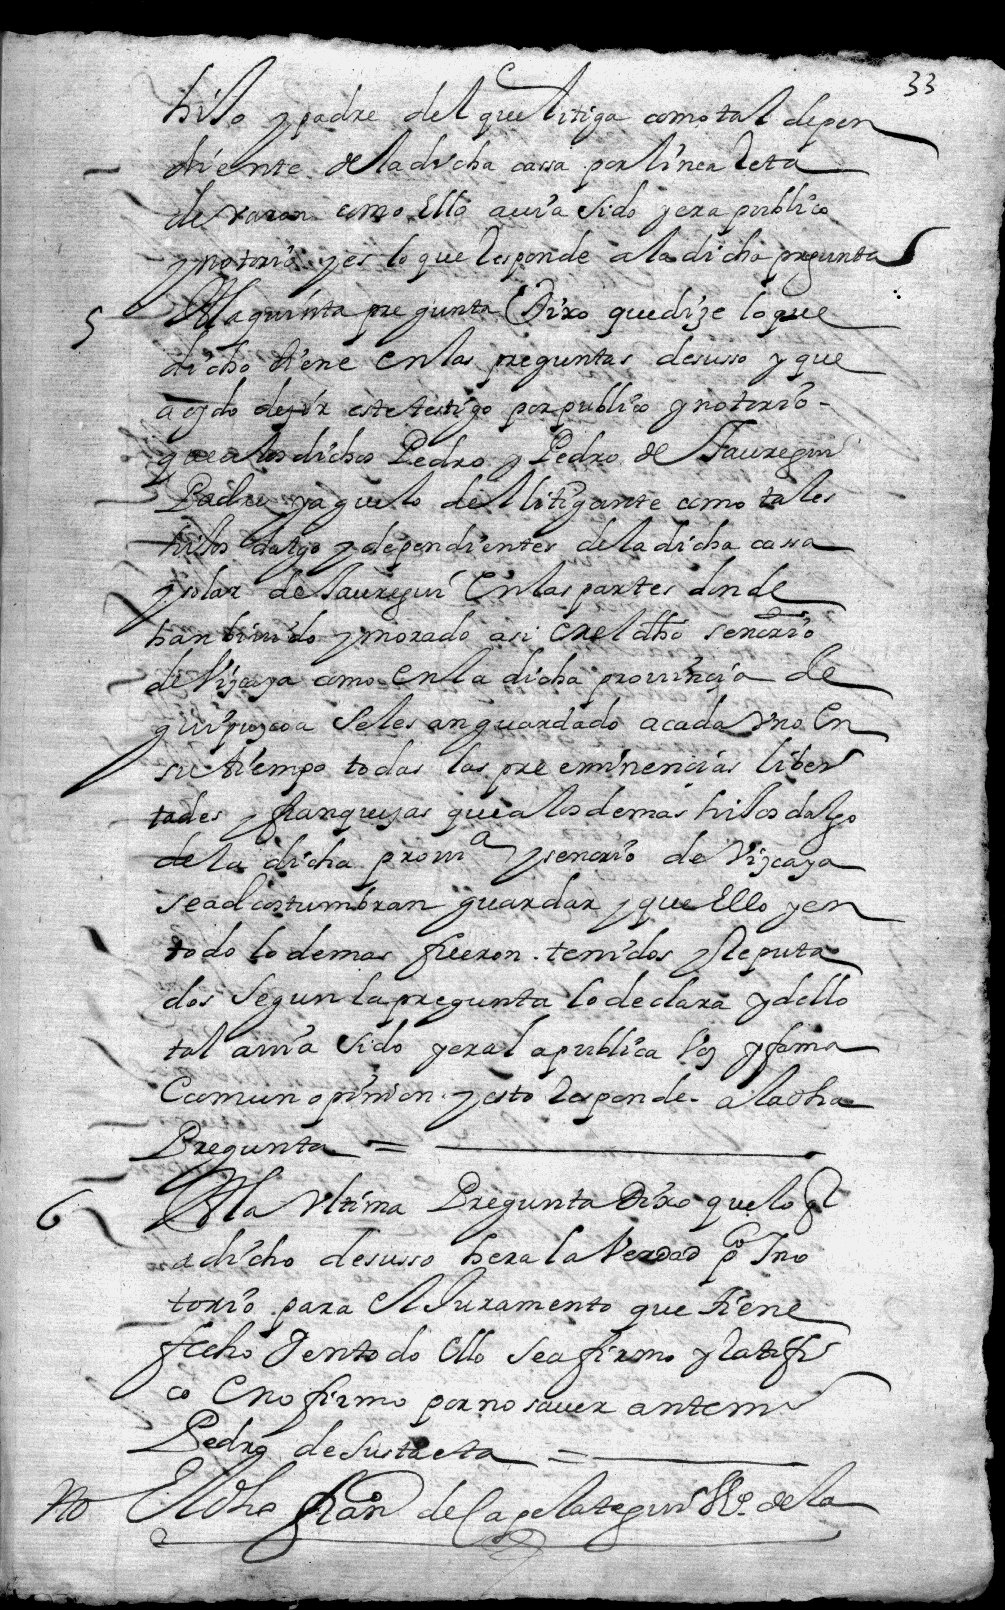 33
hiJo y padre del que litiga como tal depen
diente de la dicha cassa por linea Reta
de varon como Ello auia sido y era publico
y notorio y es lo que Responde a la dicha pregunta
5 A la quinta pregunta Dixo que dize lo que
dicho tiene en las preguntas desusso y que
a oydo dezir este testigo por publico y notorio
que a los dichos Pedro y Pedro de Jauregui
Padre y aguelo del litigante como tales
hiJos dalgo y dependientes de la dicha cassa
y solar de Jauregui En las partes donde
han biuido y morado asi en el dho senorio
de Vizcaya como en la dicha prouinçia de
guipuzcoa se les an guardado a cada vno En
su tiempo todas las pre eminencias liber
tades y franquezas que a los demas hiJos dalgo
de la dicha prouia y senorio de Vizcaya
se adcostumbran guardar y que Ello y en
todo lo demas fueron tenidos y Reputa
dos segun la pregunta lo declara y dello
tal auia sido y era la publica voz y fama
Comun opinion y esto Responde a la dha
Pregunta =
6 A la vltima Pregunta Dixo que lo q
a dicho desusso hera la Verdad pco y no
torio para el Juramento que tiene
fecho y en todo ello se afirmo y Ratifi
co E no firmo por no sauer ante mi
Pedro de sustaeta =
to El dho fran de Capelategui Vo de la